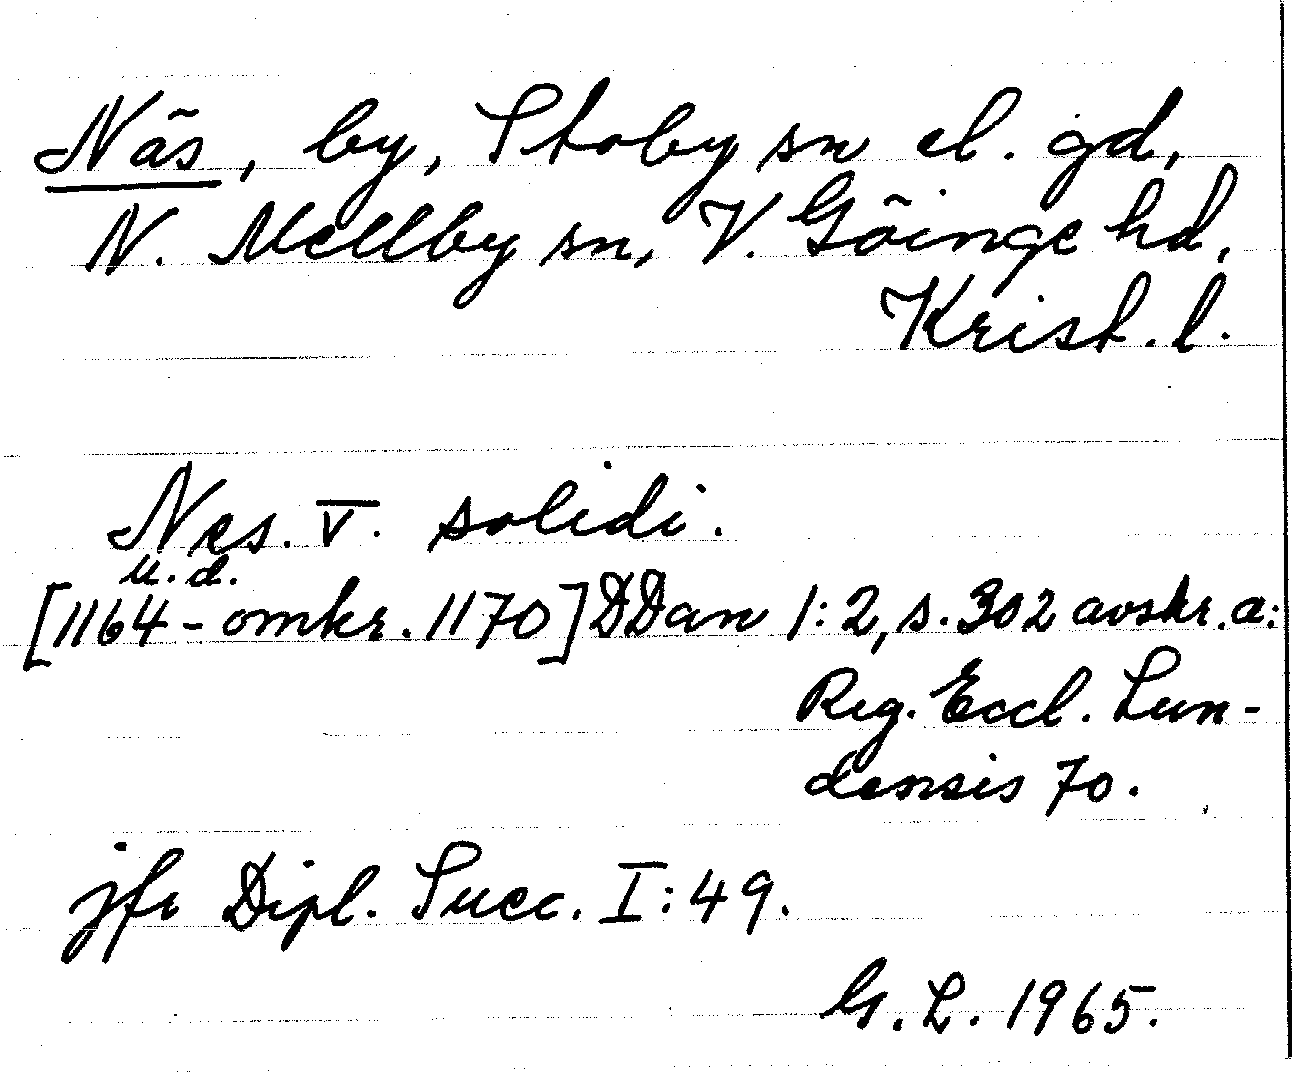 Näs, by, Stoby sn el. gd,
N. Mellby sn, V. Göinge hd,
Krist. l.
Nes. V. solidi.
u. d.
[1164-omkr. 1170] DDan 1:2, s. 302 avskr. a:
Reg. Eccl. Lun-
densis 70.
jfr Dipl. Suec. I:49.
G. L. 1965.